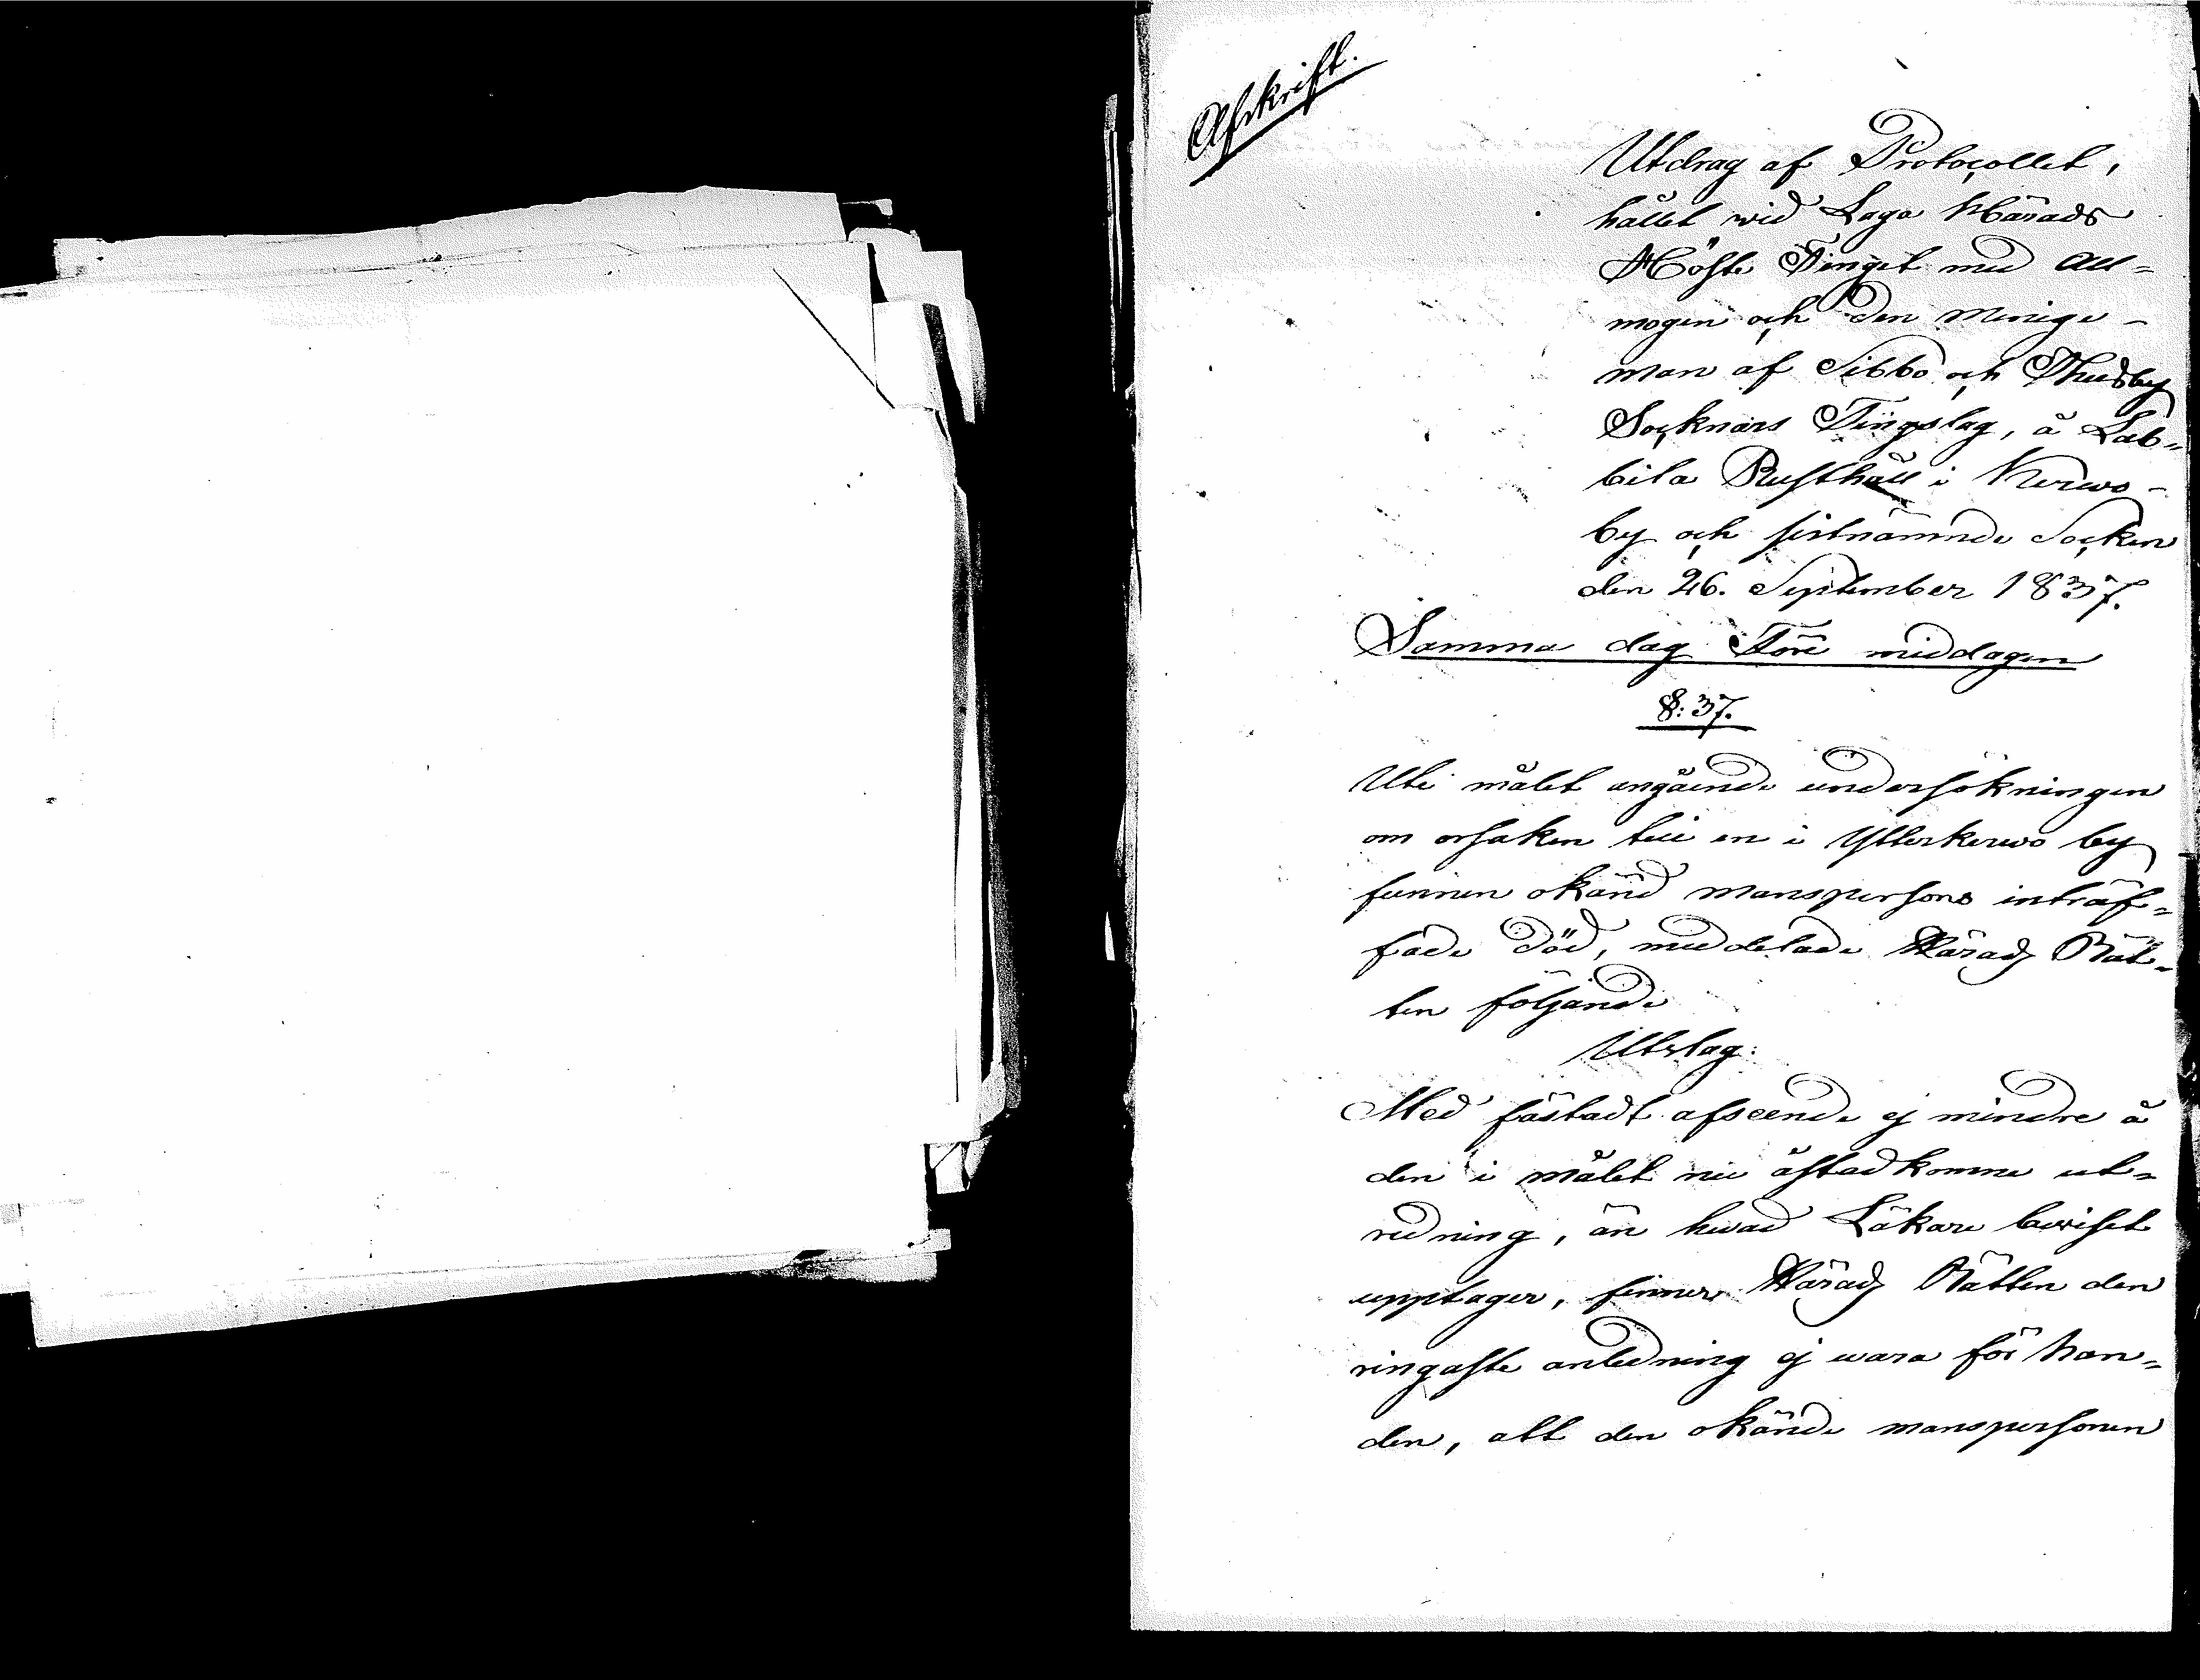 Afskrift.
Utdrag af Protocollet,
hållet wid Laga Härads
Höste Tinget med All-
mogen och den Menige
man af Sibbo och Thusby
Socknars Tingslag, å Lab-
bila Rusthåll i Kerwo
by och sistnämnde Socken
den 26. September 1837.
Samma dag Före middagen
§: 37.
Uti målet angående undersökningen
om orsaken till en i Ytterkerwo by
funnen okänd mansperfons inträf-
fade död, meddelade Härads Rät-
ten följande
Utslag:
Med fästadt afseende ej mindre å
den i målet nu åstadkomne ut-
redning, än hwad Läkare beviset
upptager, finner Härads Rätten den
ringaste anledning ej wara för han-
den, att den okände manspersonen